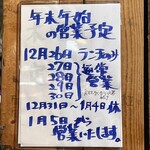 年末年始
の営業予定
12月26日 ランチのみ
27日 通常
28日 営業
29日
30日
12月31日〜1月4日 休
1月5日から
営業いたします。